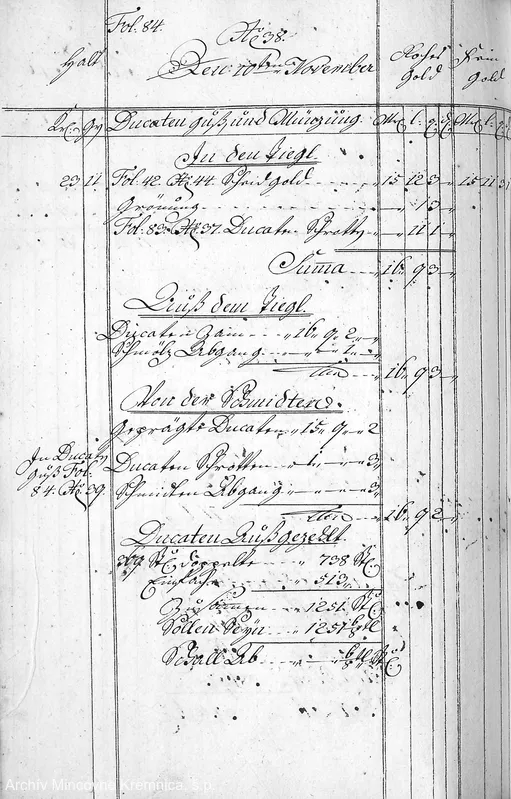 Fol. 84.
No 38.
Halt
Den 10ten November
Rohes Gold
Fein Gold
Kr. Gr. Ducaten Guß und Münzung Mar. l. q. d. Mar. l.
In den Tiegl.
23 11 Fol. 42. No 44. Scheid gold 15 12 3 15 11 3
Grönung 13
Fol. 83. No 37. Ducaten Schrotten 11 1
Summa 16 9 3
Auß dem Tiegl.
Ducaten Zain 16 9 2
Schmölz Abgang 1
16 9 3
Von der Schmidten.
Geprägte Ducaten 15 9 2
In Ducaten Guß Fol. 84. No 39.
Ducaten Schrotten 1 3
Schmidten Abgang 3
16 9 2
Ducaten Außgezehlt.
369 St. doppelte 738 St.
Einfache 513
Zusammen 1251 St.
Sollen Seyn 1251
Schall Ab
Archív Mincovne Kremnica, š.p.